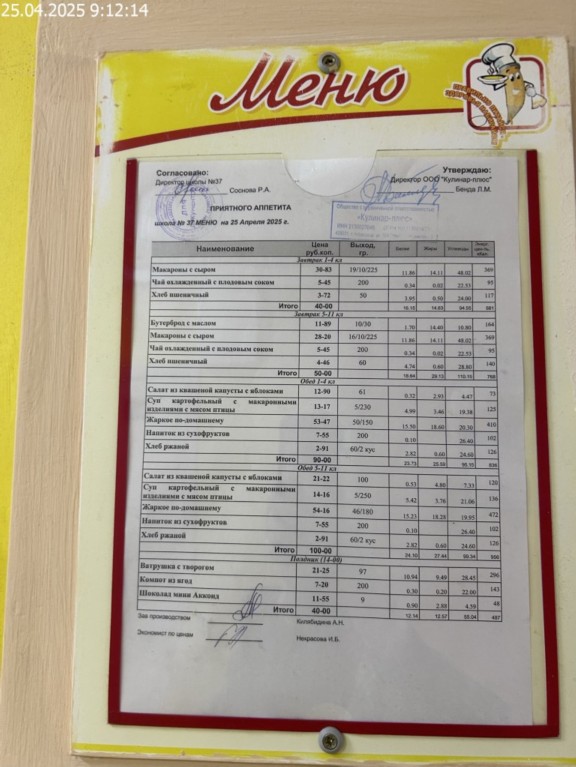 25.04.2025 9:12:14
Меню
Согласовано:
Директор школы №37
Соснова Р.А.
Утверждаю:
Директор ООО "Кулинар-плюс"
Бенда Л.М.
«Кулинар-плюс»
ПРИЯТНОГО АППЕТИТА
школа № 37 МЕНЮ на 25 Апреля 2025 г.
Наименование Цена руб.коп. Выход, гр. Белки Жиры Углеводы
Завтрак 1-4 кл
Макароны с сыром 30-83 19/10/225 11.86 14.11 48.02 369
Чай охлажденный с плодовым соком 5-45 200 0.34 0.02 22.53 95
Хлеб пшеничный 3-72 50 3.95 0.50 24.00 117
Итого 40-00
Завтрак 5-11 кл
Бутерброд с маслом 11-89 10/30 1.70 14.40 16.80 164
Макароны с сыром 28-20 16/10/225 11.86 14.11 48.02 369
Чай охлажденный с плодовым соком 5-45 200 0.34 0.02 22.53 95
Хлеб пшеничный 4-46 60 4.74 0.60 28.80 140
Итого 50-00
Обед 1-4 кл
Салат из квашеной капусты с яблоками 12-90 61 0.32 2.93 4.47 73
Суп картофельный с макаронными
изделиями с мясом птицы 13-17 5/230 4.99 3.46 19.38 125
Жаркое по-домашнему 53-47 50/150 15.50 18.60 20.30 410
Напиток из сухофруктов 7-55 200 0.10 26.40 102
Хлеб ржаной 2-91 60/2 кус 2.82 0.60 24.60 126
Итого 90-00
Обед 5-11 кл
Салат из квашеной капусты с яблоками 21-22 100 0.53 4.80 7.33 120
Суп картофельный с макаронными
изделиями с мясом птицы 14-16 5/250 5.42 3.76 21.06 136
Жаркое по-домашнему 54-16 46/180 15.23 18.28 19.95 472
Напиток из сухофруктов 7-55 200 0.10 26.40 102
Хлеб ржаной 2-91 60/2 кус 2.82 0.60 24.60 126
Итого 100-00
Полдник (14-00)
Ватрушка с творогом 21-25 97 10.94 9.49 28.45 296
Компот из ягод 7-20 200 0.30 0.20 22.00 143
Шоколад мини Акконд 11-55 9 0.90 2.88 4.59 48
Итого 40-00 12.14 12.57 55.04 487
Зав производством
Килябидина А.Н.
Экономист по ценам
Некрасова И.Б.